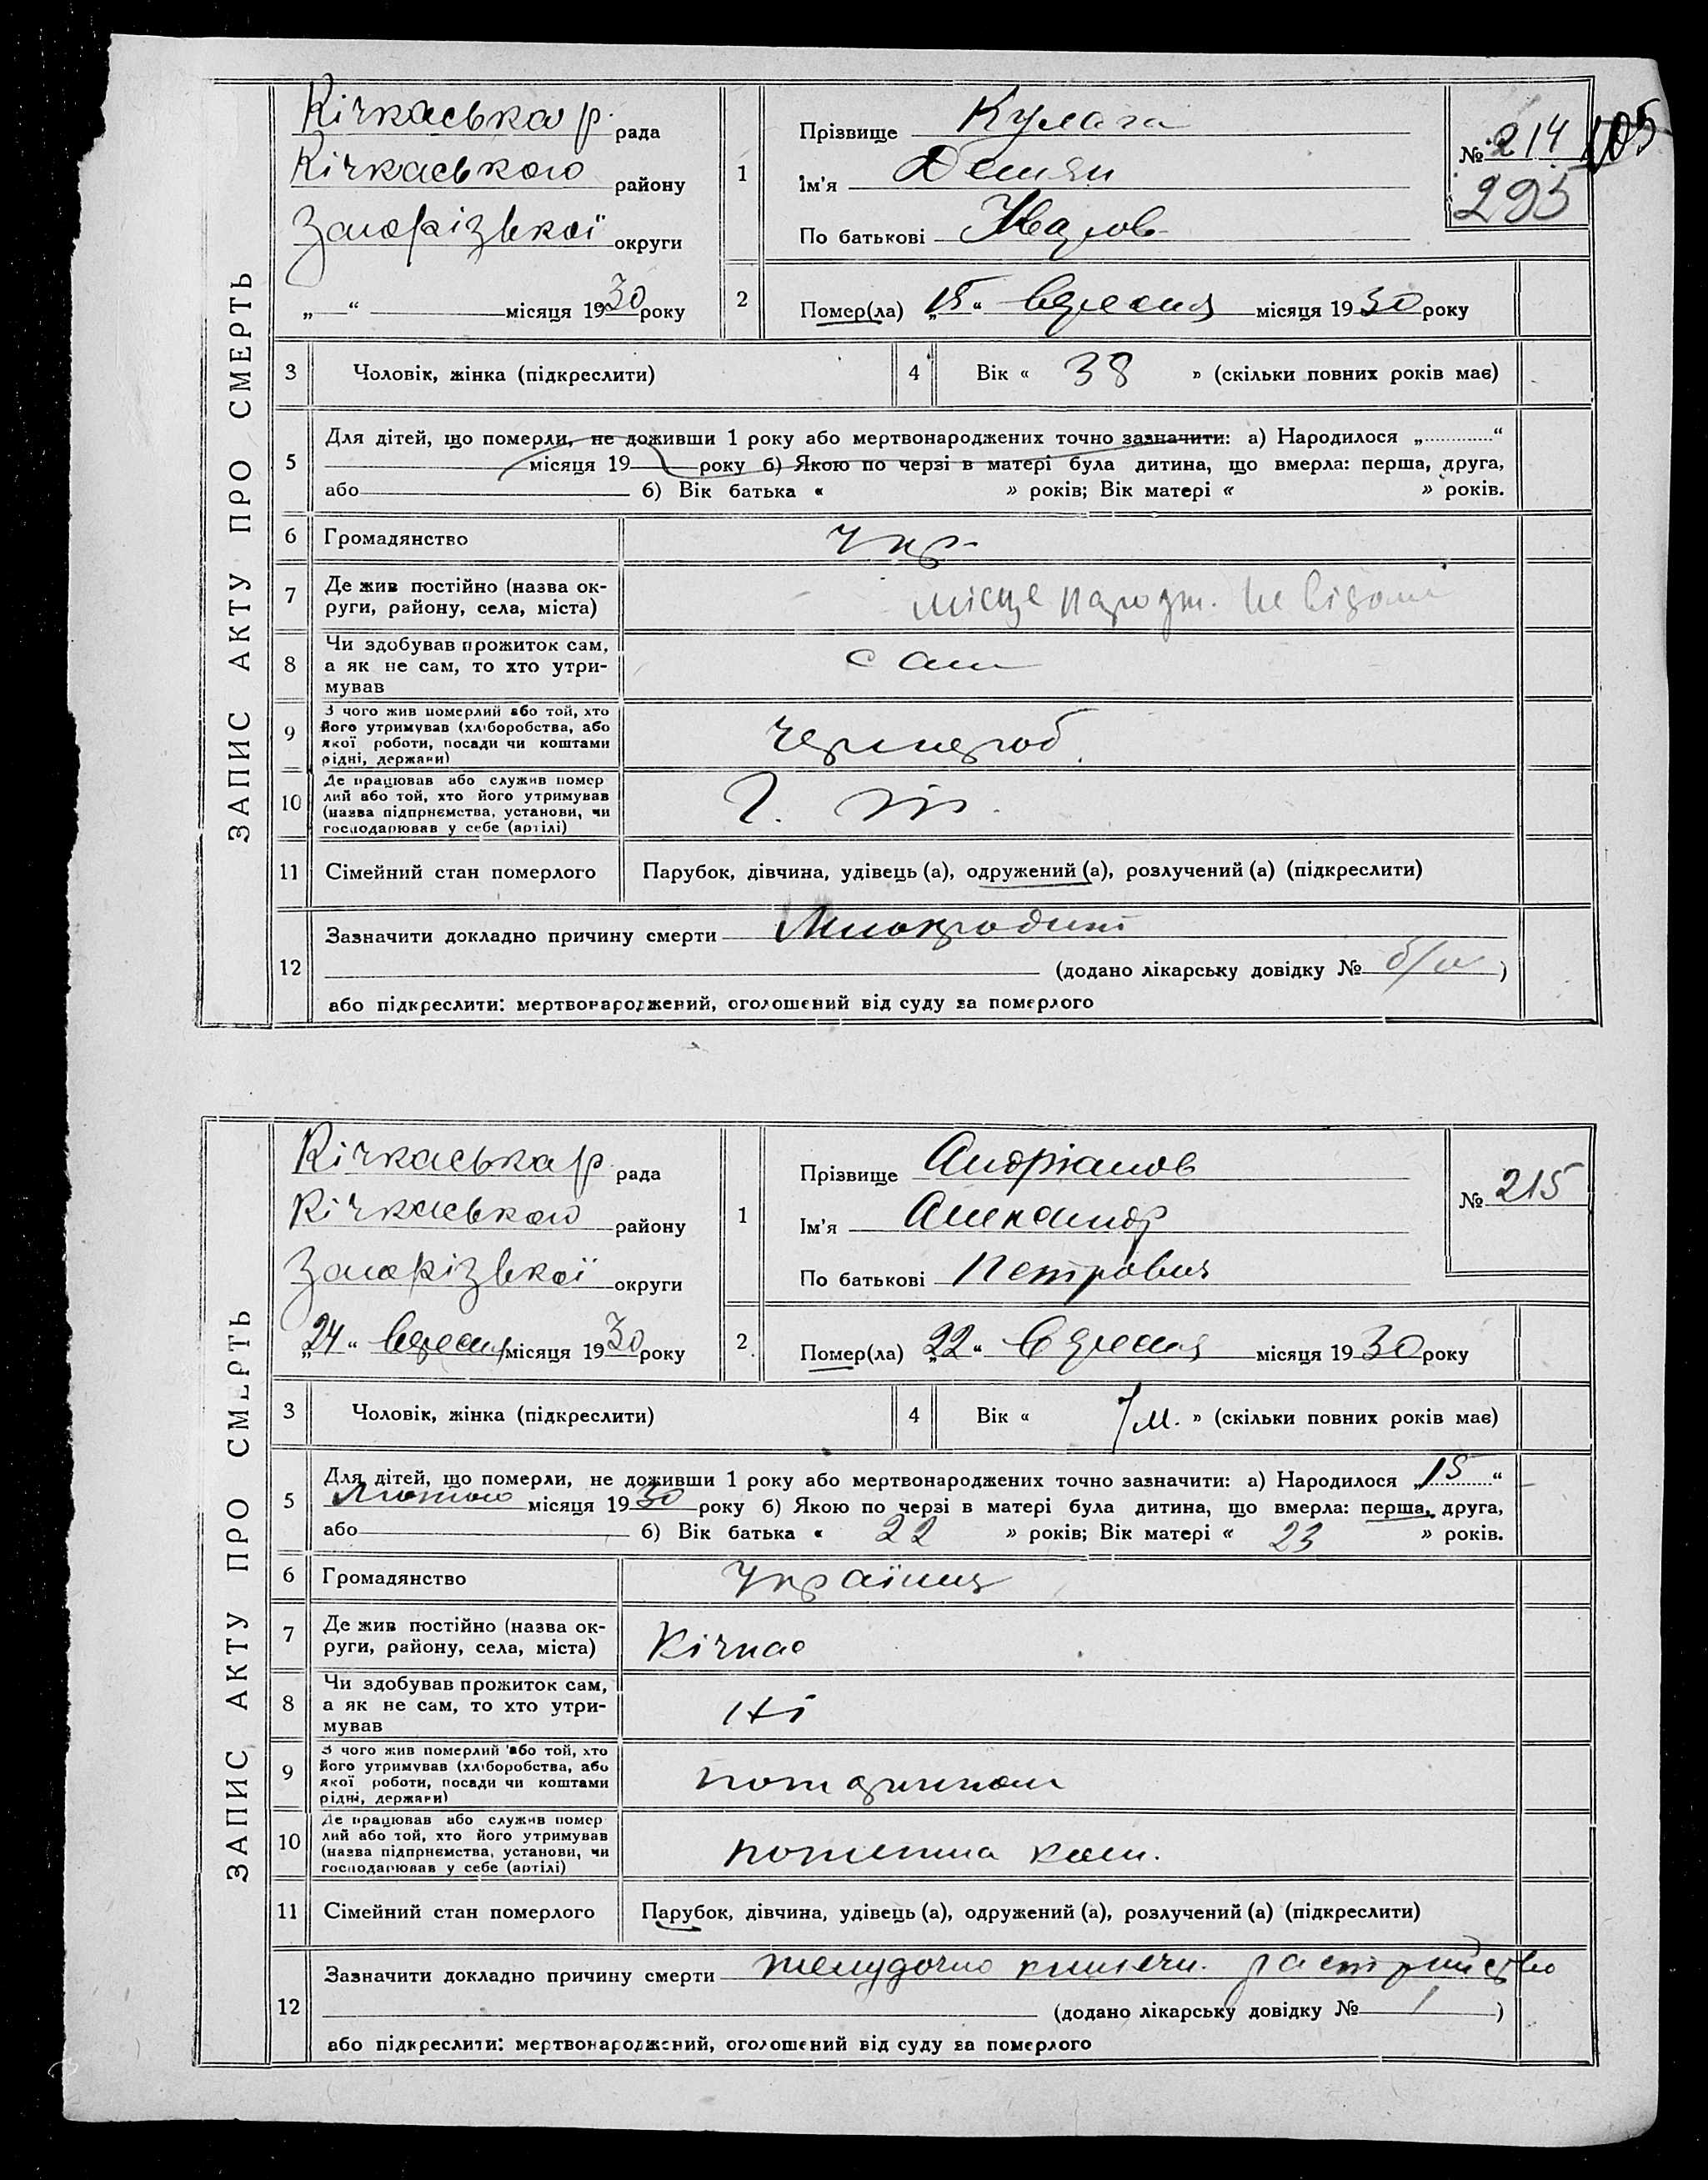 ЗАПИС АКТУ ПРО СМЕРТЬ
Кічкаська р. рада
Кічкаського району
Запорізької округи
„ “ місяця 1930 року
1
Прізвище Кулага
Ім'я Демян
По батькові
№ 214 105
295
2
Помер(ла) „15“ вересня місяця 1930 року
3 Чоловік, жінка (підкреслити)
4 Вік « 38 » (скільки повних років має)
5
Для дітей, що померли, не доживши 1 року або мертвонароджених точно зазначити: а) Народилося „ “
місяця 19 року б) Якою по черзі в матері була дитина, що вмерла: перша, друга,
або б) Вік батька « » років; Вік матері « » років.
6 Громадянство Укр.
7 Де жив постійно (назва ок-
руги, району, села, міста) місце народж. не відомі
8 Чи здобував прожиток сам,
а як не сам, то хто утри-
мував сам
9 З чого жив померлий або той, хто
його утримував (хліборобства, або
якої роботи, посади чи коштами
рідні, держави) чернороб.
10 Де працював або служив помер
лий або той, хто його утримував
(назва підприємства, установи, чи
господарював у себе (артілі)
11 Сімейний стан померлого Парубок, дівчина, удівець (а), одружений (а), розлучений (а) (підкреслити)
12
Зазначити докладно причину смерти Миокродит
(додано лікарську довідку № б/н )
або підкреслити: мертвонароджений, оголошений від суду за померлого
ЗАПИС АКТУ ПРО СМЕРТЬ
Кічкаська р. рада
Кічкаського району
Запорізької округи
„24“ вересня місяця 1930 року
1
Прізвище Андріанов
Ім'я Александр
По батькові Петрович
№ 215
2
Помер(ла) „22“ вересня місяця 1930 року
3 Чоловік, жінка (підкреслити)
4 Вік « 7 м. » (скільки повних років має)
5
Для дітей, що померли, не доживши 1 року або мертвонароджених точно зазначити: а) Народилося „15“
Лютого місяця 1930 року б) Якою по черзі в матері була дитина, що вмерла: перша, друга,
або б) Вік батька « 22 » років; Вік матері « 23 » років.
6 Громадянство Україниц
7 Де жив постійно (назва ок-
руги, району, села, міста) Кічкас
8 Чи здобував прожиток сам,
а як не сам, то хто утри-
мував Ні
9 З чого жив померлий або той, хто
його утримував (хліборобства, або
якої роботи, посади чи коштами
рідні, держави)
10 Де працював або служив помер
лий або той, хто його утримував
(назва підприємства, установи, чи
господарював у себе (артілі)
11 Сімейний стан померлого Парубок, дівчина, удівець (а), одружений (а), розлучений (а) (підкреслити)
12
Зазначити докладно причину смерти желудочно кишечн. растрийство
(додано лікарську довідку № / )
або підкреслити: мертвонароджений, оголошений від суду за померлого